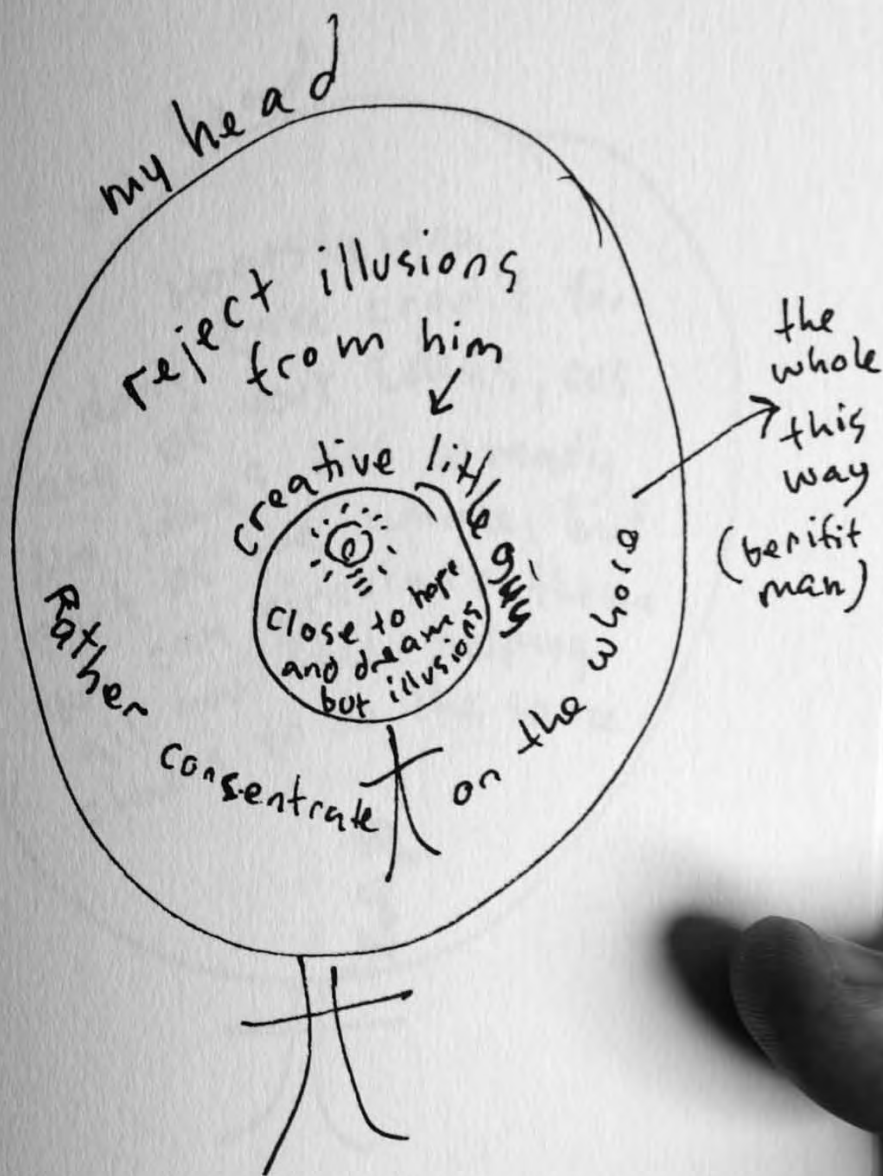 my head
reject illusions
from him
creative little guy
close to hope
and dreams
but illusions
Rather consentrate on the whole
the
whole
this
way
(berifit
man)